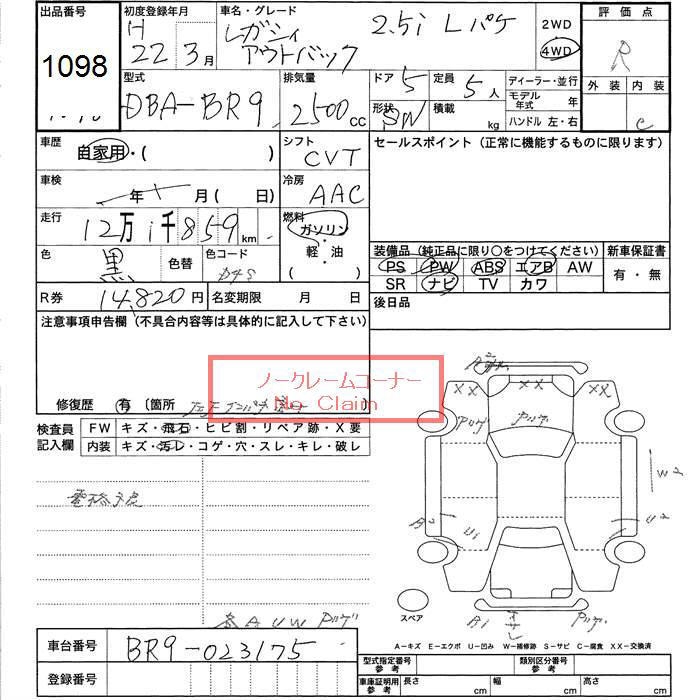 出品番号 1098
初度登録年月 H 22 3月
車名・グレード レガシィ アウトバック 2.5i Lパケ
2WD
4WD
評価点 R
外装 内装 C
型式 DBA-BR9
排気量 2500 CC
ドア 5
形状 SW
定員 5人
積載 kg
ディーラー・並行
モデル年式 年
ハンドル 左・右
車歴 自家用・( )
シフト CVT
セールスポイント (正常に機能するものに限ります)
車検 年 月(日)
冷房 AAC
走行 12万1千859km
燃料 ガソリン・軽・油 ( )
色 黒 色替 色コード D4S
装備品 (純正品に限り〇をつけてください)
新車保証書
PS PW ABS エアB AW
SR ナビ TV カワ
有・無
R券 14,820円
名変期限 月 日
後日品
注意事項申告欄(不具合内容等は具体的に記入して下さい)
ノークレームコーナー
No Claim
修復歴 有 〔箇所
検査員記入欄
FW キズ・飛石・ヒビ割・リペア跡・X要
内装 キズ・汚レ・コゲ・穴・スレ・キレ・破レ
XX XX XX
W2
U2
A2
U1
スペア
A1
A U W
A-キズ E-エクボ U-凹み W-補修跡 S-サビ C-腐食 XX-交換済
車台番号 BR9-023175
登録番号
型式指定番号 参考
類別区分番号 参考
車庫証明用 参考 長さ cm 幅 cm 高さ cm